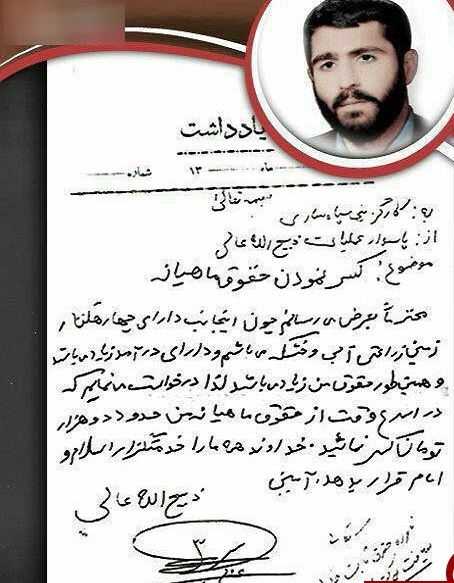 یادداشت
شماره ماه ۱۳
بسمه تعالی
به: کارگزینی سپاه ساری
از: پاسدار عملیات ذبیح الله عالی
موضوع: کسر نمودن حقوق ماهیانه
محترماً بعرض می رسانم چون اینجانب دارای چهار هکتار
زمین زراعتی آبی و خشکه می باشم و دارای درآمد زیاد می باشد
و همینطور حقوق من زیاد می باشد لذا درخواست می نمایم که
در اسرع وقت از حقوق ماهیانه من حدود دو هزار
تومان کسر نمائید. خداوند همه ما را خدمتگزار اسلام و
امام قرار بدهد. آمین
ذبیح الله عالی